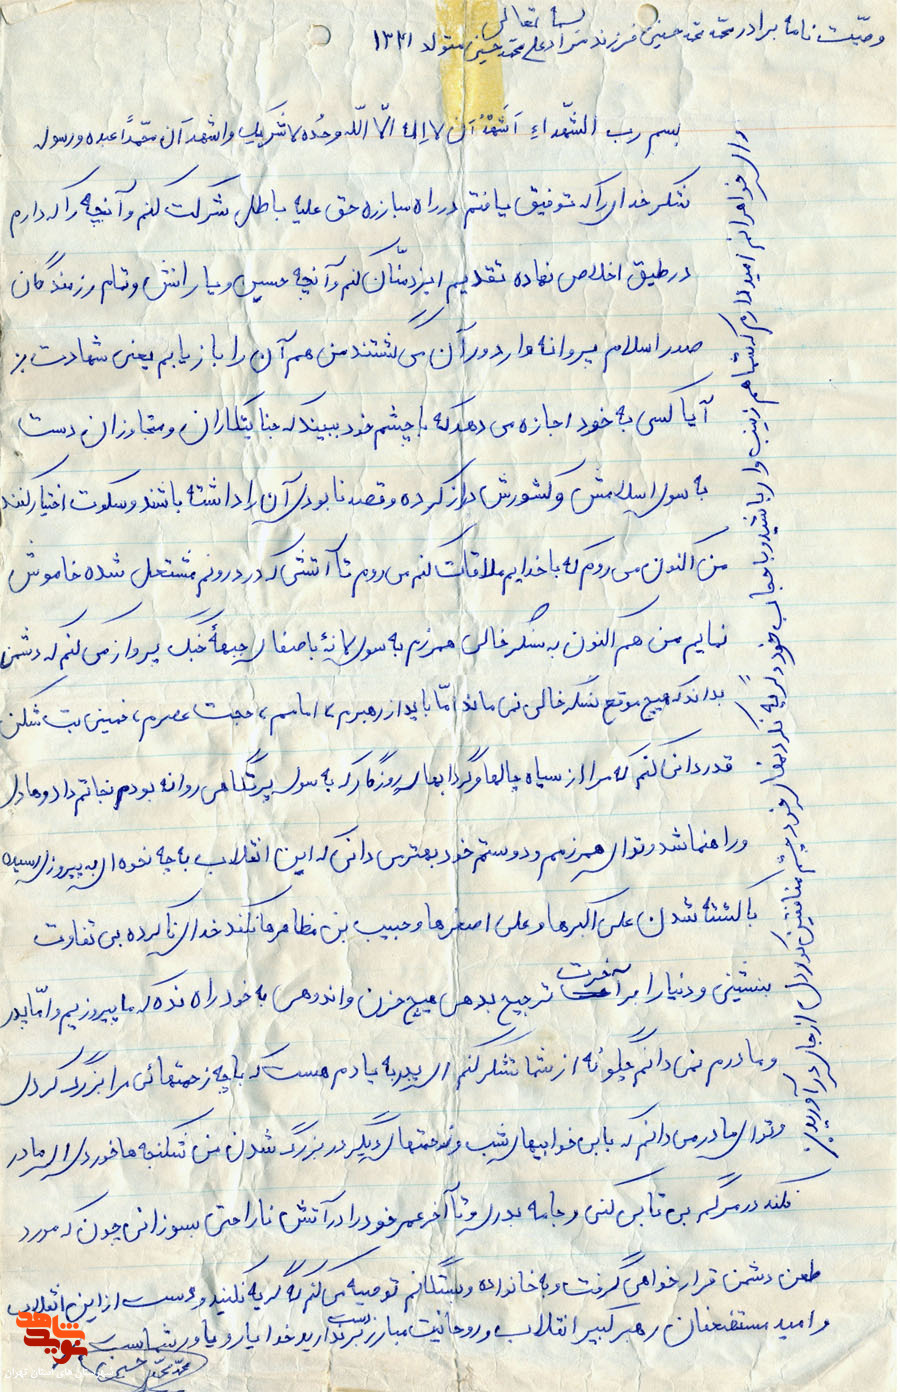 بسمه تعالی
وصیّت نامه برادر محمد محمد حسینی فرزند مرادعلی محمد حسینی متولد ۱۳۴۱
بسم رب الشّهداءِ اَشهَدُ اَن لا اِله الّا اللّه وحدُه لا شَریک و اشهد اَن محّمداً عبده و رسوله
شکر خدای را که توفیق یافتم در راه مبارزه حق علیه باطل شرکت کنم و آنچه را که دارم
در طبق اخلاص نهاده تقدیم ایزد منّان کنم و آنچه حسین و یارانش و تمام رزمندگان
صدر اسلام پروانه وار دور آن می گشتند من هم آن را بازیابم یعنی شهادت
آیا کسی به خود اجازه می دهد که با چشم خود ببیند که جنایتکاران و متجاوزان دست
به سوی اسلامش و کشورش دراز کرده و قصد نابودی آن را داشته باشند و سکوت اختیار کند
من اکنون می روم که با خدایم ملاقات کنم می روم تا آتشی که در درونم مشتعل شده خاموش
نمایم من هم اکنون به سنگر خالی همرزم به سوی خانهٔ باصفای جبههٔ جنگ پرواز می کنم که دشمن
بداند که هیچ موقع سنگر خالی نمی ماند امّا باید از رهبرم، امامم، حجت عصرم، خمینی بت شکن
قدردانی کنم که مرا از سیاه چالها و گردابهای روزگار که به سوی پرتگاهی روانه بودم نجاتم داد و هادی
و راهنما شد و تو ای همرزمم و دوستم خود بهتر می دانی که این انقلاب به چه نحوه ای به پیروزی رسیده
با کشته شدن علی اکبرها و علی اصغرها و حبیب بن مظاهرها نکند خدای ناکرده بی تفاوت
بنشینی و دنیا را بر آخرت ترجیح بدهی هیچ حزن و اندوهی به خود راه نده که ما پیروزیم و امّا پدر
و مادرم نمی دانم چگونه از شما تشکر کنم ای پدر به یادم هست که با چه زحمتهائی مرا بزرگ کردی
و تو ای مادر می دانم که با بی خوابیهای شب و زحمتهای دیگر در بزرگ شدن من شکنجه ها خوردی ای مادر
نکند در مرگم بی تابی کنی و جامه بدری و تا آخر عمر خود را در آتش ناراحتی بسوزانی چون که مورد
طعن دشمن قرار خواهی گرفت و به خانواده و بستگانم توصیه می کنم که گریه نکنید و دست از این انقلاب
و امید مستضعفان رهبر کبیر انقلاب و روحانیت مبارز برندارید خدا یار و یاور شماست
محمد محمد حسینی
و ای خواهرانم امیدوارم که شما هم زینب وار باشید و با حجاب خود و گریه نکردنهای خود چشم منافقین کوردل از جای درآورید.
نوید شاهد